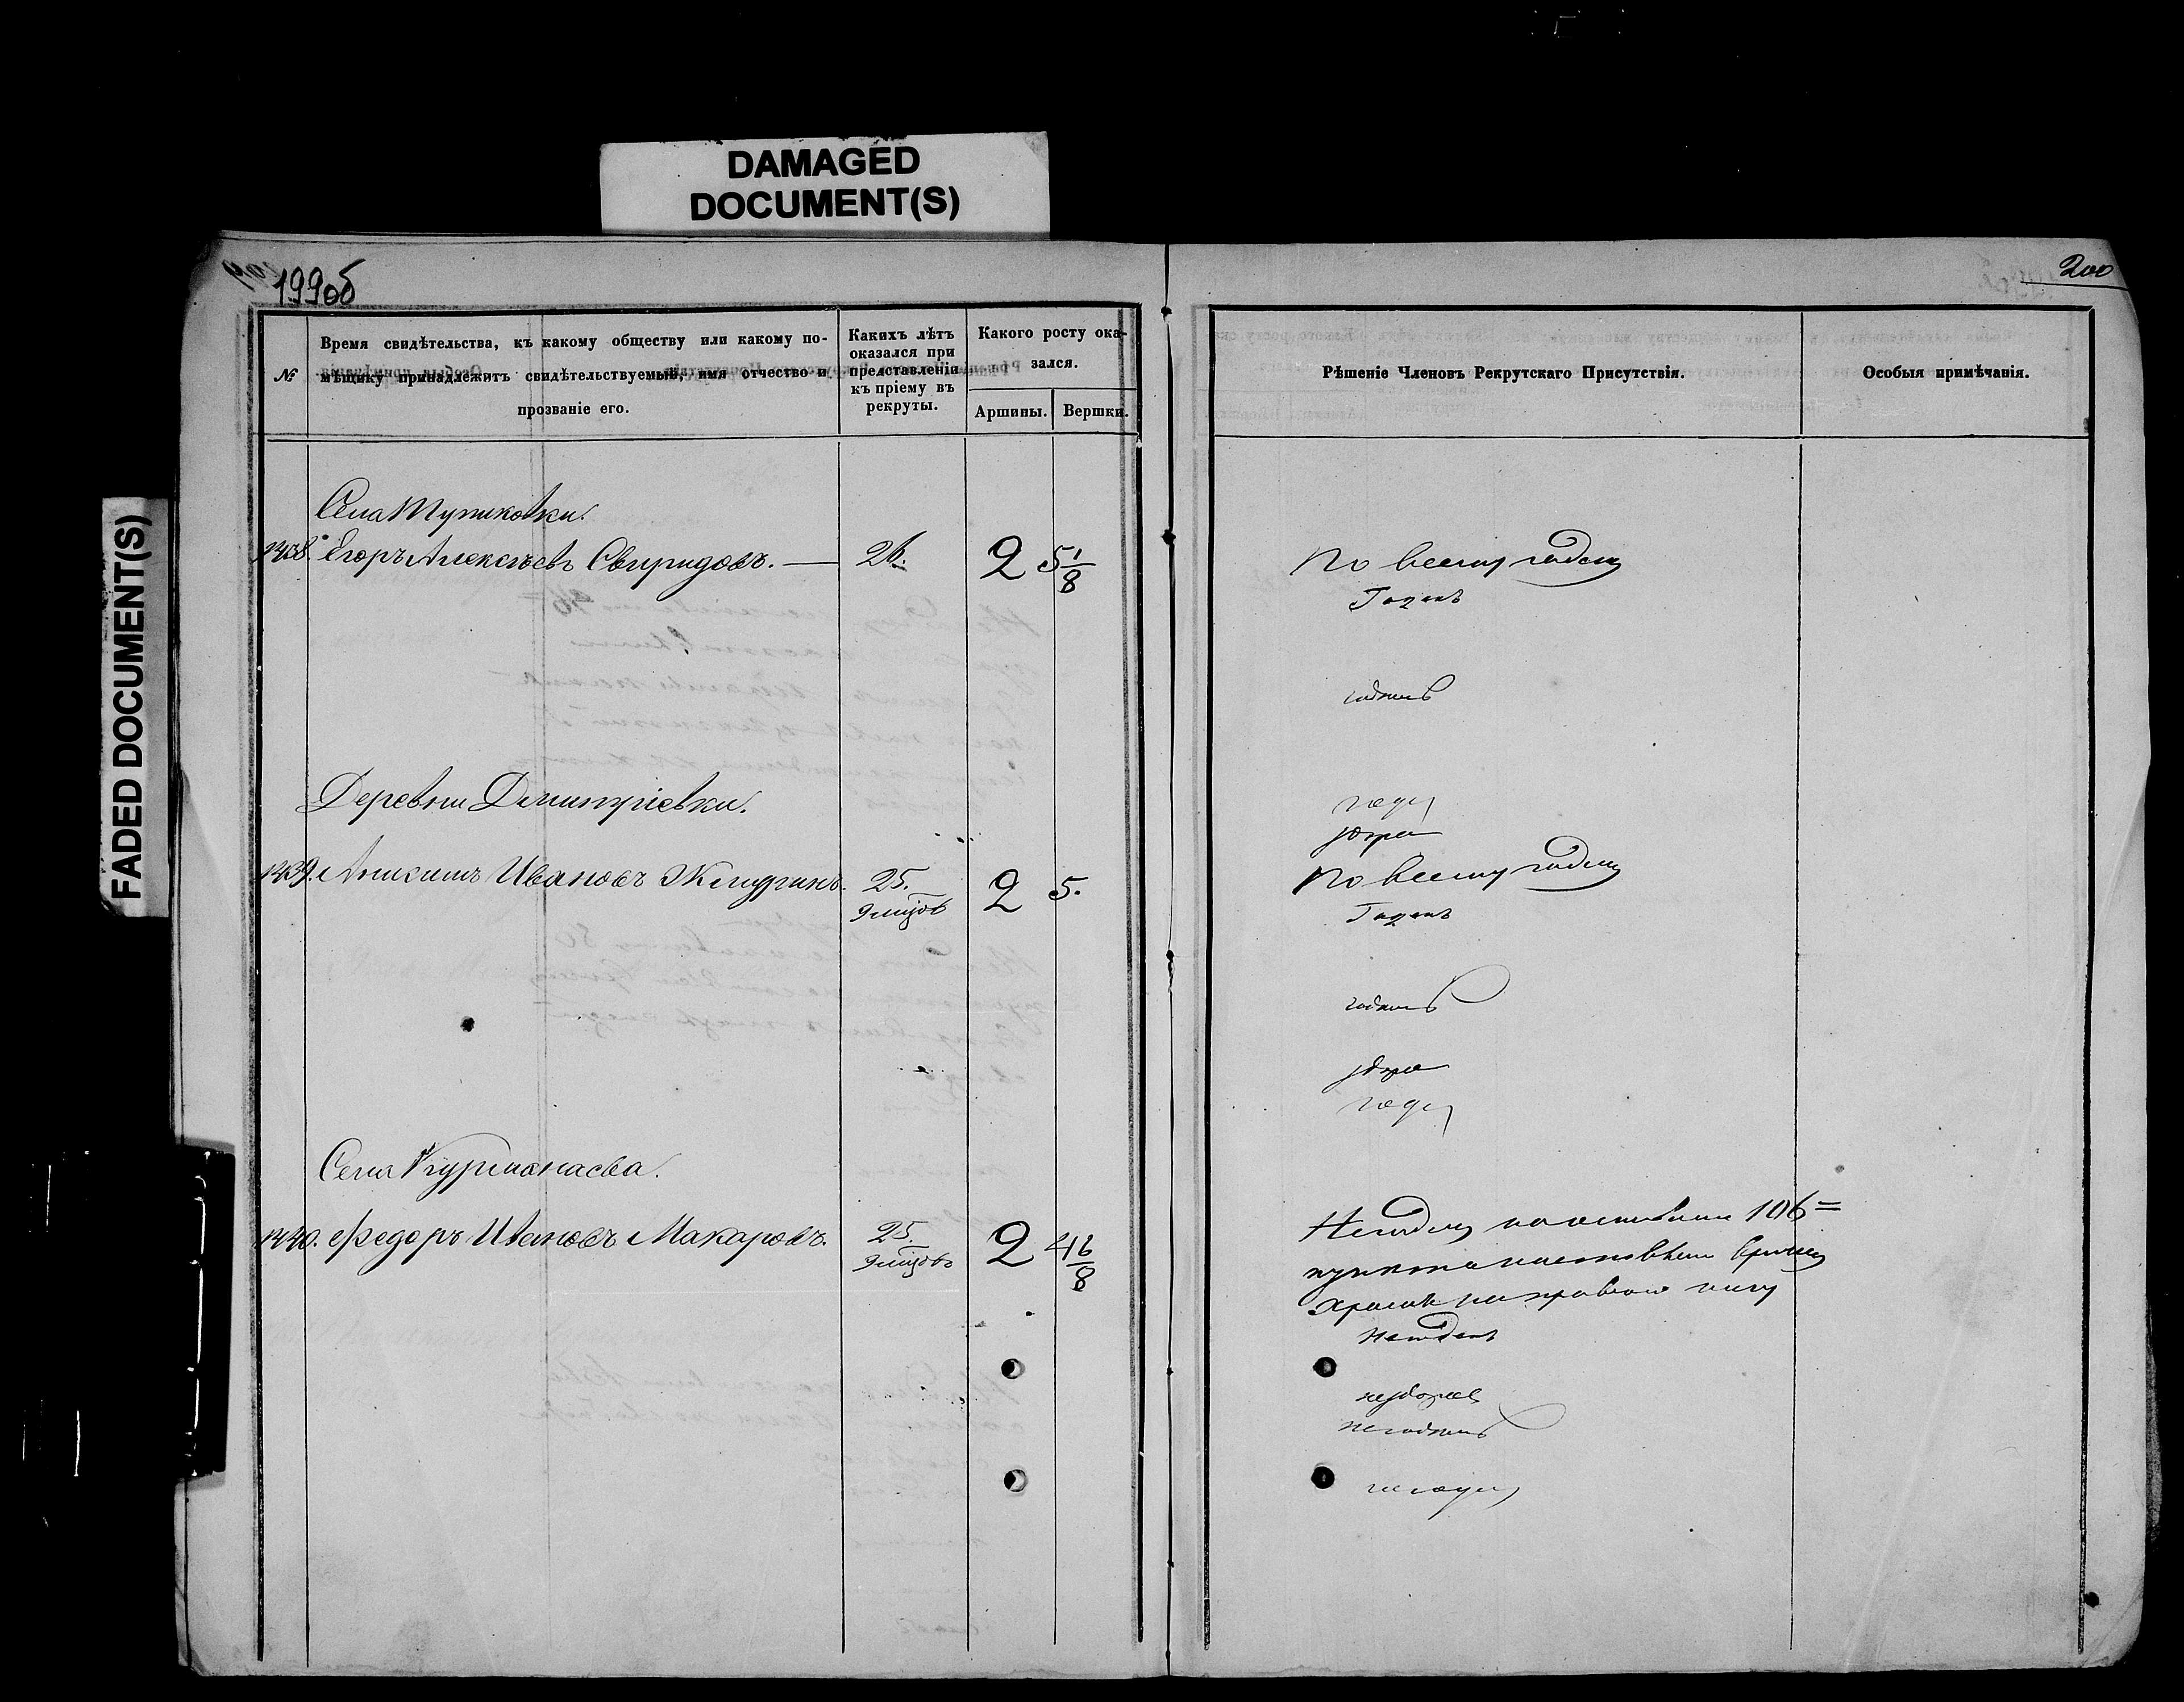 DAMAGED
DOCUMENT(S)
FADED DOCUMENT(S)
199об
200
№
Время свидѣтельства, къ какому обществу или какому по-
мѣщику принадлежитъ свидѣтельствуемый, имя отчество и
прозваніе его.
Какихъ лѣтъ
оказался при
представленіи
къ пріему въ
рекруты.
Какого росту ока-
зался.
Аршины.
Вершки.
Рѣшеніе Членовъ Рекрутскаго Присутствія.
Особыя примѣчанія.
Села Тупиковки.
1438. Егоръ Алексѣевъ Свиридовъ. — 26. 2 5 1/8
По всему годенъ
Годенъ
годенъ
Деревни Дмитріевки.
1439. Иванов 25. 2 5.
По всему годенъ
Годенъ
годенъ
Села Курманаева.
1440. Федоръ Ивановъ Макаровъ. 25. 2 4 6/8
Негоденъ на основаніи 106
пункта
на правую ногу
Негоденъ
негоденъ